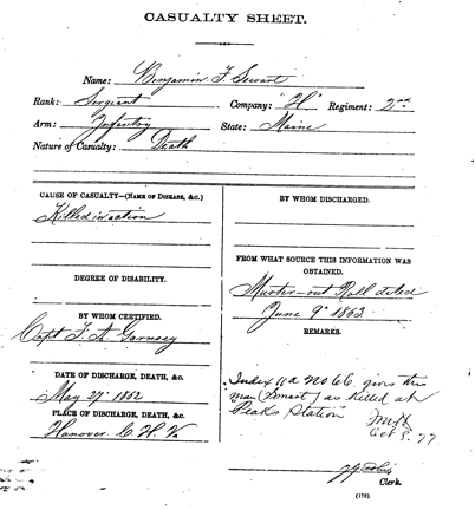 CASUALTY SHEET.
Name: Benjamin F Smart
Rank: Sergeant Company: "H" Regiment: 2nd
Arm: Infantry State: Maine
Nature of Casualty: Death
CAUSE OF CASUALTY—(NAME OF DISEASE, &c.)
Killed in action
DEGREE OF DISABILITY.
BY WHOM CERTIFIED.
Capt F. A.
DATE OF DISCHARGE, DEATH, &c.
May 27" 1862
PLACE OF DISCHARGE, DEATH, &c.
Hanover C. H. Va
BY WHOM DISCHARGED.
FROM WHAT SOURCE THIS INFORMATION WAS OBTAINED.
Muster-out Roll dated
June 9" 1863
REMARKS.
Index gives this
man (Smart) as Killed at
Peaks Station
Oct 5. 77
Clerk.